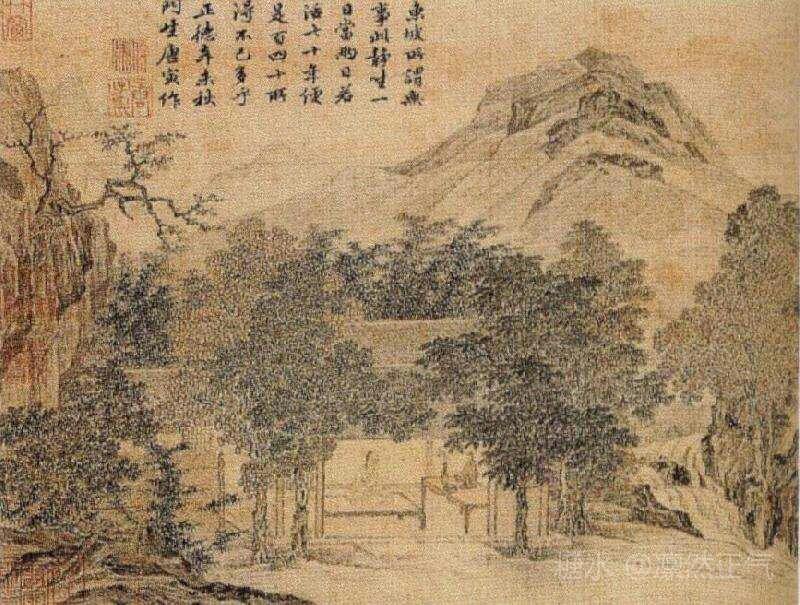 東坡所謂無
事此靜坐一
日當兩日若
活七十年便
是百四十所
得不已多乎
正德辛未秋
門生唐寅作
@凛然正气